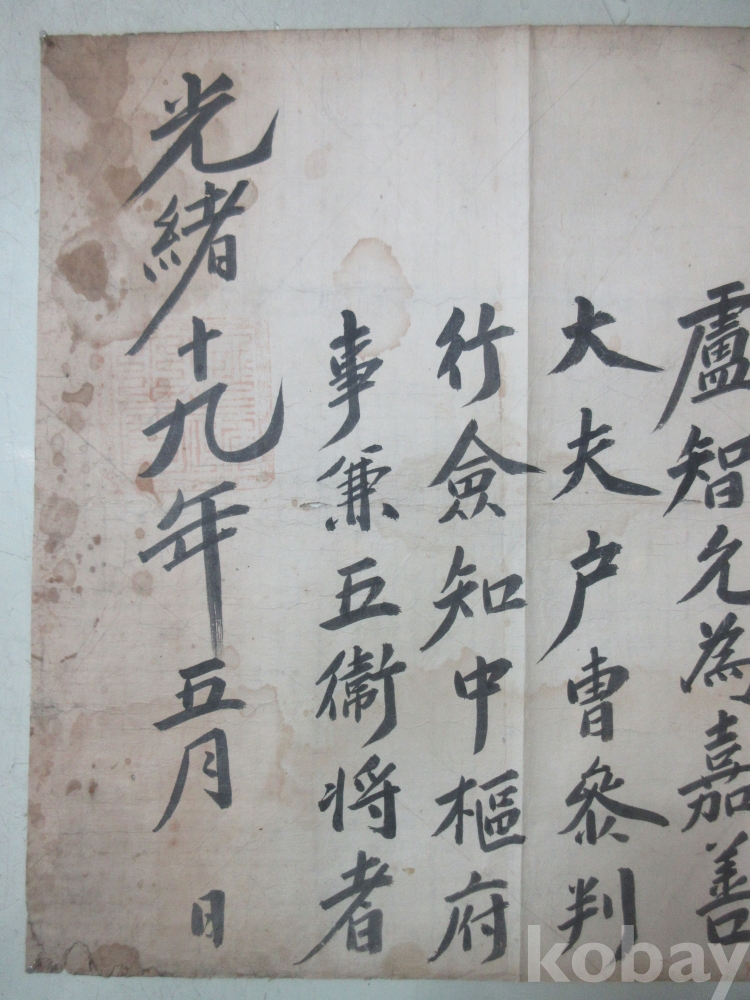 盧智允為嘉善
大夫户曺叅判
行僉知中樞府
事兼五衛将者
光緖十九年五月　日
kobay